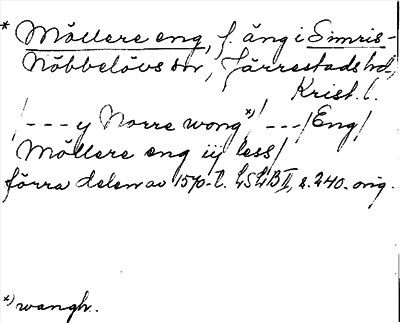 * Möllere eng, f. äng i Simris-
Nöbbelövs sn, Järrestads hd,
Krist. l.
/---y Norre wong *)/---/Eng/
Möllere eng iij less/
förra delen av 1570-t. LSLB II, s. 240. orig.
*) wangh.